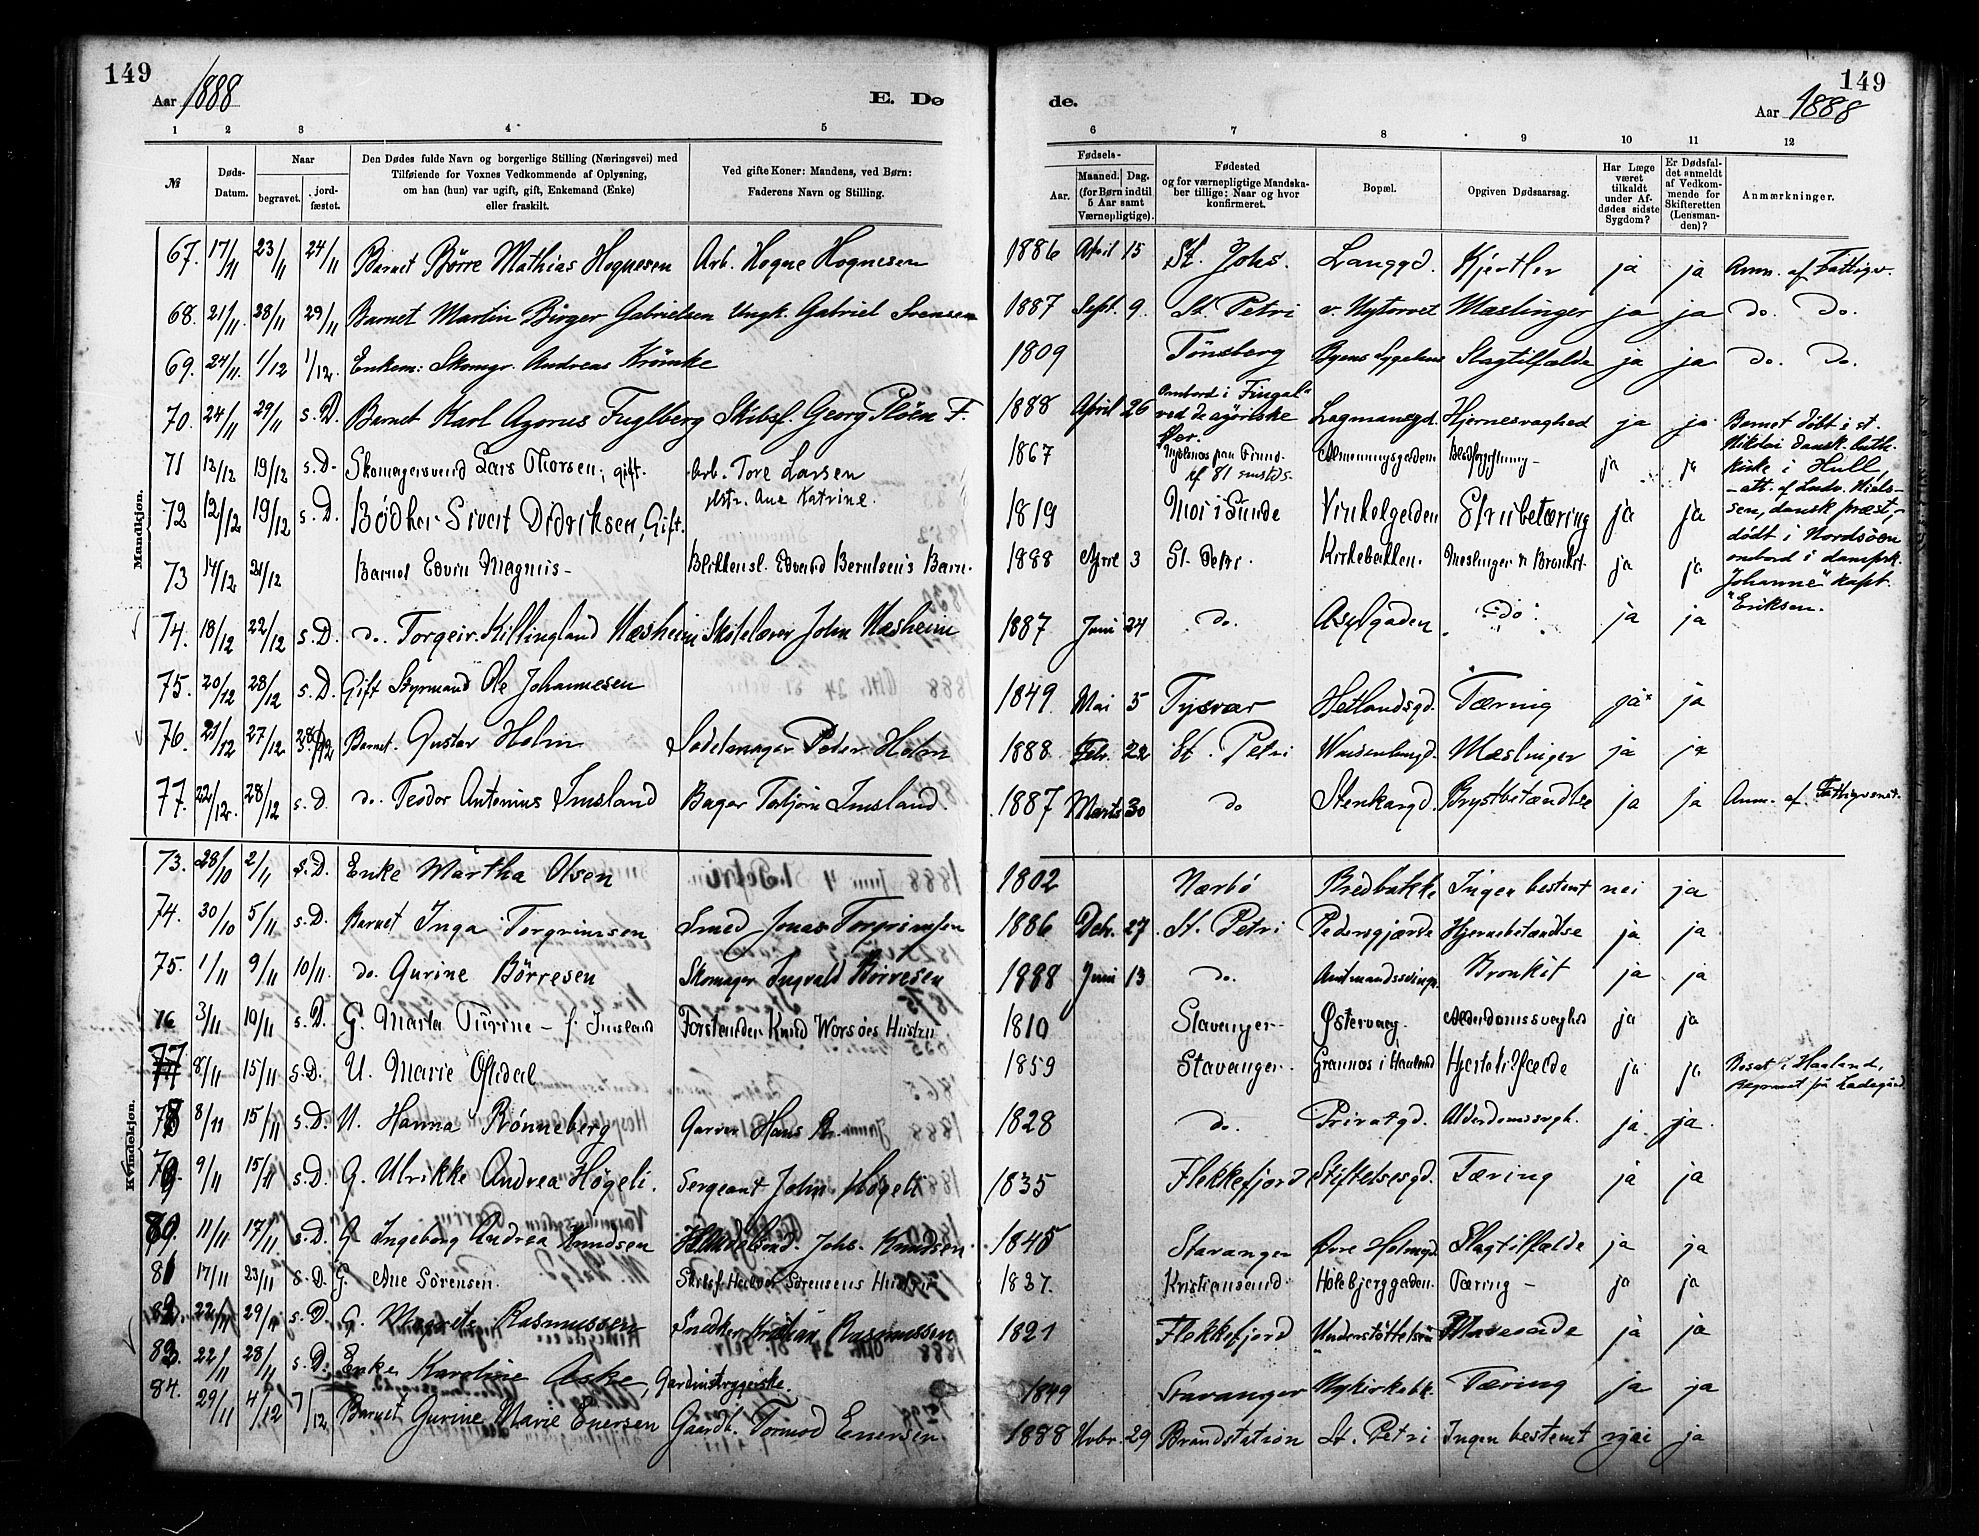 149
149
Aar 1888
E. Dø
de.
Aar 1888
1 2 3 4 5 6 7 8 9 10 11 12
№
Døds-Datum.
Naar
begravet.
jord-fæstet.
Den Dødes fulde Navn og borgerlige Stilling (Næringsvei) med
Tilføiende for Voxnes Vedkommende af Oplysning,
om han (hun) var ugift, gift, Enkemand (Enke)
eller fraskilt.
Ved gifte Koner: Mandens, ved Børn:
Faderens Navn og Stilling.
Fødsels-
Aar.
Maaned. Dag.
(for Børn indtil
5 Aar samt
Værnepligtige).
Fødested
og for værnepligtige Mandska-
ber tillige: Naar og hvor
konfirmeret.
Bopæl.
Opgiven Dødsaarsag.
Har Læge
været
tilkaldt
under Af-
dødes sidste
Sygdom?
Er Dødsfal-
det anmeldt
af Vedkom-
mende for
Skifteretten
(Lensman-
den)?
Anmærkninger.
Mandkjøn.
67. 17/11 23/11 24/11 Barnet Börre Mathias Hognesen Arb. Hogne Hognesen 1886 April 15 St. Johs. Langgd. Kjertler ja ja Anm. af Fattigv.
68. 21/11 28/11 29/11 Barnet Martin Birger Gabrielsen Ungk. Gabriel Svensen 1887 Sept. 9. St. Petri v. Nytorvet Mæslinger ja ja do. do.
69. 24/11. 1/12 1/12. Enkem: Skomgr. Andreas Krömke 1809 Tönsberg Byens Sygehus Slagtilfælde ja ja do. do.
70. 24/11 29/11 s. D. Barnet Karl Azorus Fuglberg Skibsf. Georg Plöen F. 1888 April 26 ombord i "Fingal" ved de azoriske Öer. Lagmansgd. Hjernesvaghed ja ja Barnet döbt i st.
Nikolai dansk. luth.
kirke i Hull,
- att. af Ludv. Niel-
sen, dansk præst, -
dödt i Nordsöen
ombord i dampsk.
"Johanne" kapt.
Eriksen.
71 13/12 19/12 s. D. Skomagersvend Lars Thorsen, gift. Arb. Tore Larsen 1867 Almenningsgaden. ja ja
72 12/12 19/12 s. D. Bödker Sivert Didriksen, Gift. 1819 Mos i Sunde Vinkelgaden Strubetæring ja ja
73 14/12 21/12 Barnet Edvin Magnus - Blikkensl. Edvard Berntsens Barn. 1888 3 St. Petri. Kirkebakken. Mæslinger & Bronkit. ja ja
74. 18/12 22/12 s. D. do. Torgeir Killingland Næsheim Skolelærer John Næsheim 1887 Juni 24 do. Asylgaden " do " ja ja
75. 20/12 28/12 s. D. Gift Styrmand Ole Johannesen 1849 Mai 5 Tysvær Hetlandsgd. Tæring ja ja
76. 21/12 27/12 28/12 Barnet. Gustav Holm Sadelmager Peder Holm 1888 Febr. 22 St. Petri Mæslinger ja ja
77. 22/12. 28/12 s. D. do. Teodor Antonius Imsland Bager Torbjörn Imsland. 1887 Marts 30 do Stenkargd. Brystbetændlse ja ja Anm. af Fattigvæsnt.
Kvindekjøn.
73. 28/10 2/11 s. D. Enke Martha Olsen 1802 Nærbö Bredbakke Ingen bestemt nei ja
74. 30/10 5/11 s. D. Barnet Inga Torgrimsen Smed Jonas Torgrimsen 1886 Debr. 27. St. Petri Pedersgjærde Hjernebetændlse ja ja
75. 1/11 9/11 10/11. do. Gurine Börresen Skomager Ingvald Börresen 1888 Juni 13 do. Bronkit ja ja
76 3/11 10/11 s. D. G. Marta Turine - f. Imsland Forstander Knud Worsöes Hustru 1810 Stavanger Østervaag. Alderdomssvaghed ja ja
77 8/11 15/11 s. D. U. Marie Oftedal 1859 Stavanger. Grannes i Haaland Hjertetilfælde ja ja Bosat i Haaland,
Begravet på Ladegård.
78 8/11 15/11 s. D. U. Hanna Rönneberg Garver Hans R. 1828 do. Privatgd. Alderdomssvgh. ja ja.
79 9/11 15/11 s. D. G. Ulrikke Andrea Högeli. Sergeant John Högeli 1835 Flekkefjord Stiftelsesgd. Tæring ja ja
80. 11/11 17/11. s. D. G. Ingeborg Andrea Knudsen Johs. Knudsen. 1845 Stavanger Övre Holmegd. Slagtilfælde ja ja
81 17/11 23/11 s. D. G. Ane Sörensen. Skibsf. Halvor Sörensens Hustru 1837. Kristiansand Holebjerggaden. Tæring - ja ja
82. 22/11 29/11 s. D. G. Magrete Rasmussen Snedker Kristian Rasmussen 1821 Flekkefjord Mavesaade ja ja
83. 22/11 28/11 s. D. Enke Karoline Aske, Gardinstrygerske. 1849 Stavanger Nykirkebk. Tæring ja ja
84. 29/11 4/12 7/12 Barnet Gurine Marie Enersen Gaardb. Tormod Enersen. 1888 Novbr. 29 Brandstation St. Petri Ingen bestemt nei ja